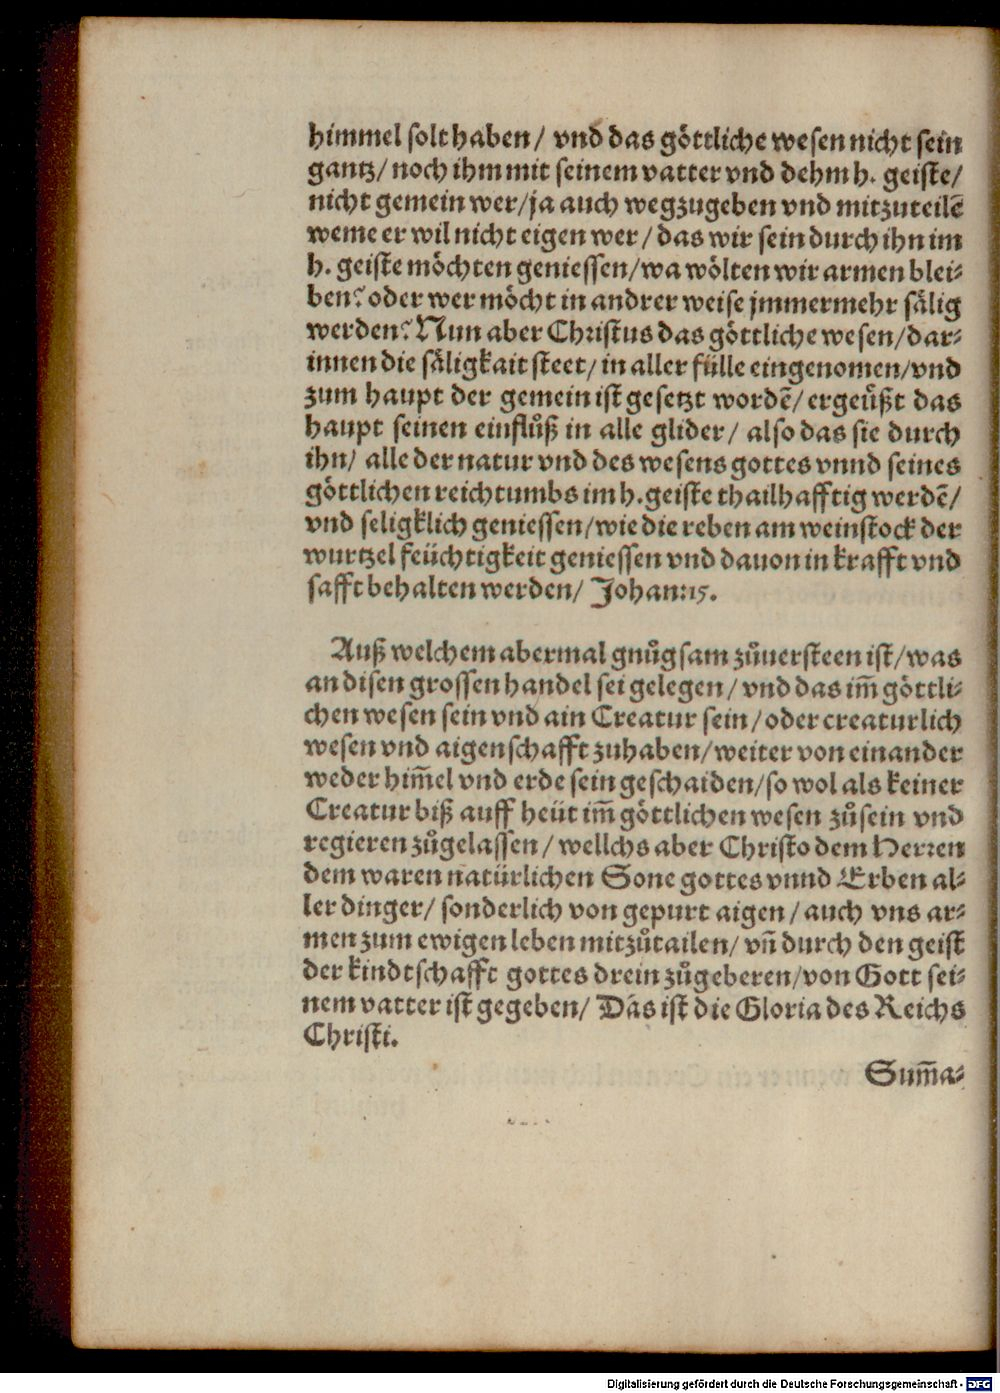 himmel solt haben / vnd das göttliche wesen nicht sein
gantz / noch ihm mit seinem vatter vnd dehm h. geiste /
nicht gemein wer / ja auch wegzugeben vnd mitzuteilē
weme er wil nicht eigen wer / das wir sein durch ihn im
h. geiste möchten geniessen / wa wölten wir armen blei⸗
ben? oder wer möcht in andrer weise jmmermehr sälig
werden? Nun aber Christus das göttliche wesen / dar⸗
innen die säligkait steet / in aller fülle eingenomen / vnd
zum haupt der gemein ist gesetzt wordē / ergeüßt das
haupt seinen einflůß in alle glider / also das sie durch
ihn / alle der natur vnd des wesens gottes vnnd seines
göttlichen reichtumbs im h. geiste thailhafftig werdē /
vnd seligklich geniessen / wie die reben am weinstock der
wurtzel feüchtigkeit geniessen vnd dauon in krafft vnd
safft behalten werden / Johan: 15.
Auß welchem abermal gnůgsam zůuersteen ist / was
an disen grossen handel sei gelegen / vnd das im̄ göttli⸗
chen wesen sein vnd ain Creatur sein / oder creaturlich
wesen vnd aigenschafft zuhaben / weiter von einander
weder him̄el vnd erde sein geschaiden / so wol als keiner
Creatur biß auff heüt im̄ göttlichen wesen zůsein vnd
regieren zůgelassen / wellchs aber Christo dem Herren
dem waren natürlichen Sone gottes vnnd Erben al⸗
ler dinger / sonderlich von gepurt aigen / auch vns ar⸗
men zum ewigen leben mitzůtailen / vn̄ durch den geist
der kindtschafft gottes drein zůgeberen / von Gott sei⸗
nem vatter ist gegeben / Das ist die Gloria des Reichs
Christi.
Sum̄a⸗
Digitalisierung gefördert durch die Deutsche Forschungsgemeinschaft - DFG